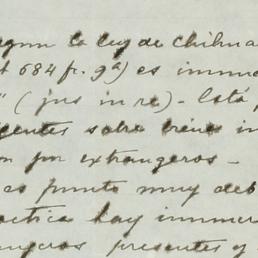 egun la ley de Chihua
t 684 fr. 9ª) es inmu
" (jus in re) - Está p
gentes sobre bienes in
on por extrangeros -
es punto muy deb
actica hay inmer
ngeros presentes y